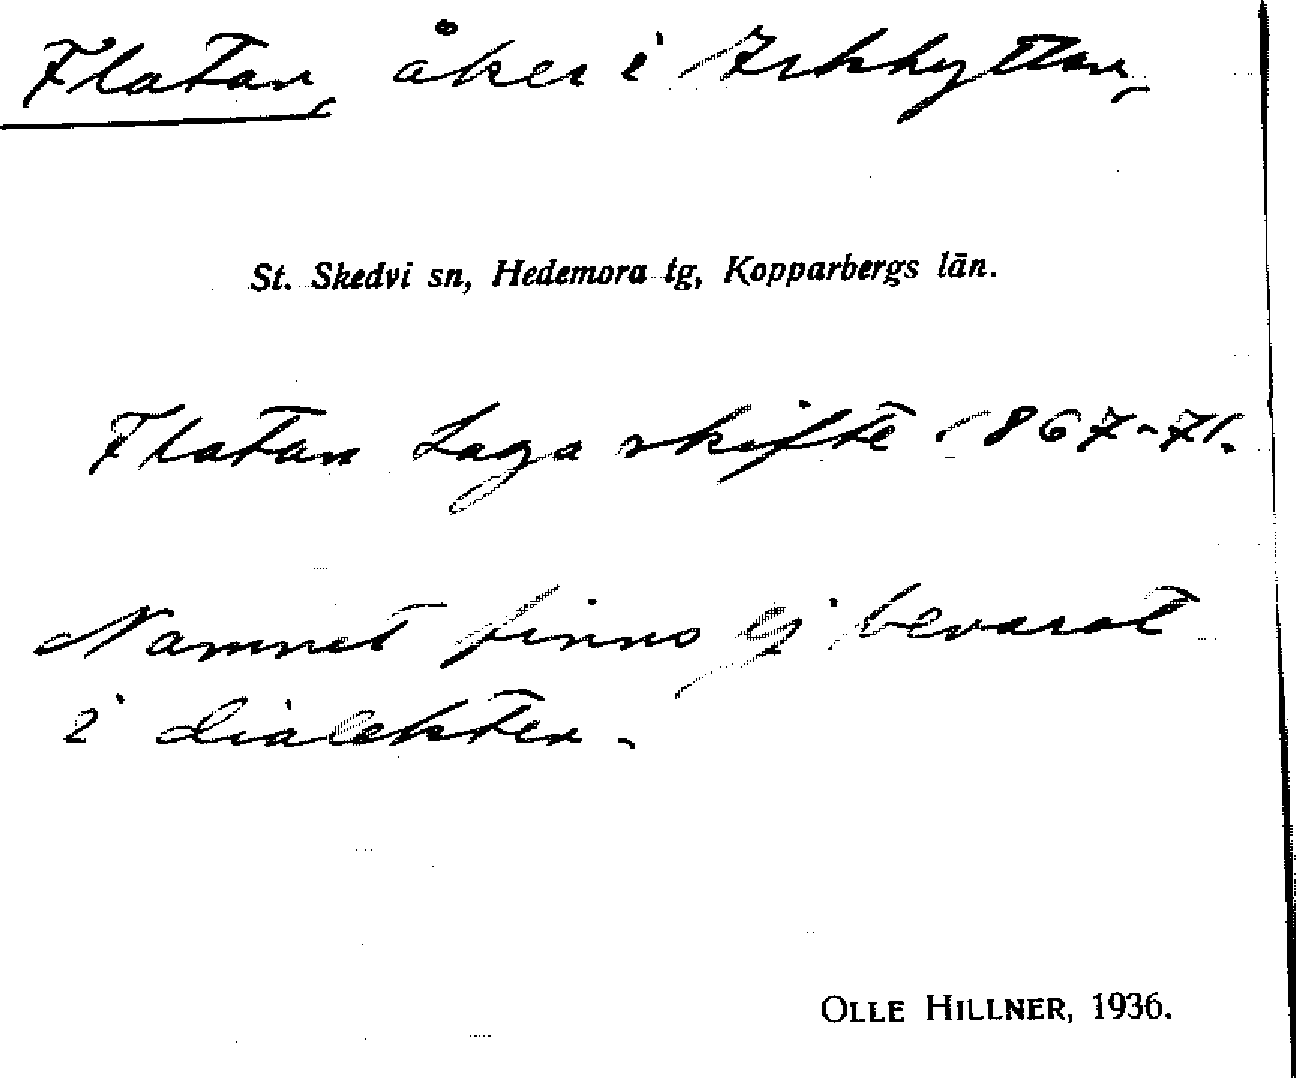 Flatan, åker i
St. Skedvi sn, Hedemora tg, Kopparbergs län.
Flatan Laga skifte 1867-71.
Namnet finns ej bevarat
i dialekten.
OLLE HILLNER, 1936.